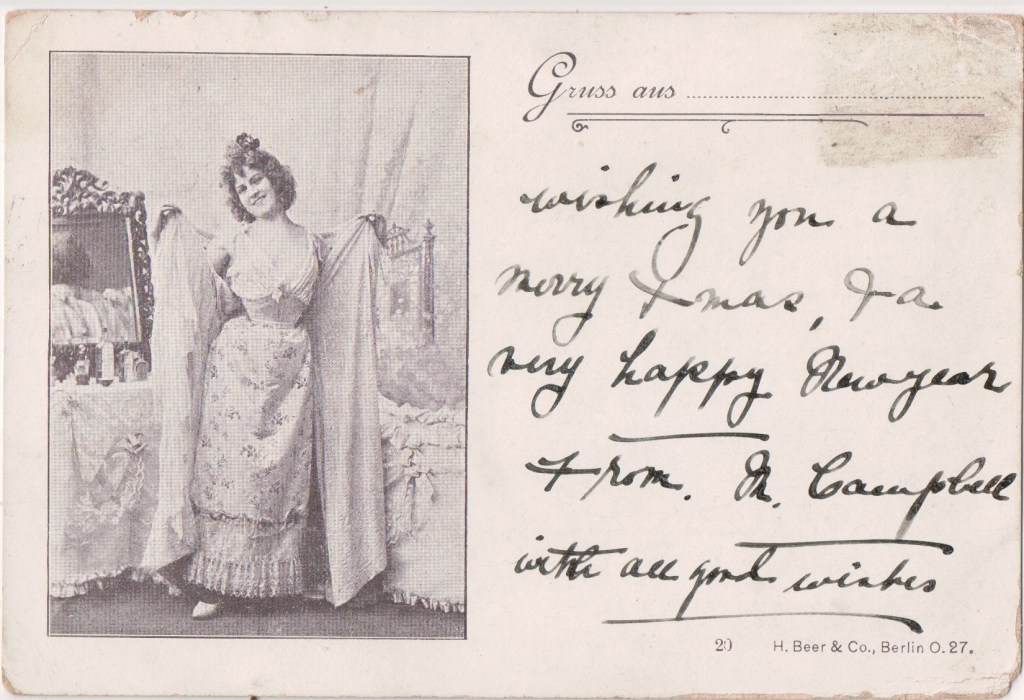 Gruss aus
wishing you a
merry Xmas, & a
very happy New year
From. M. Campbell
with all good wishes
29 H. Beer & Co., Berlin O. 27.